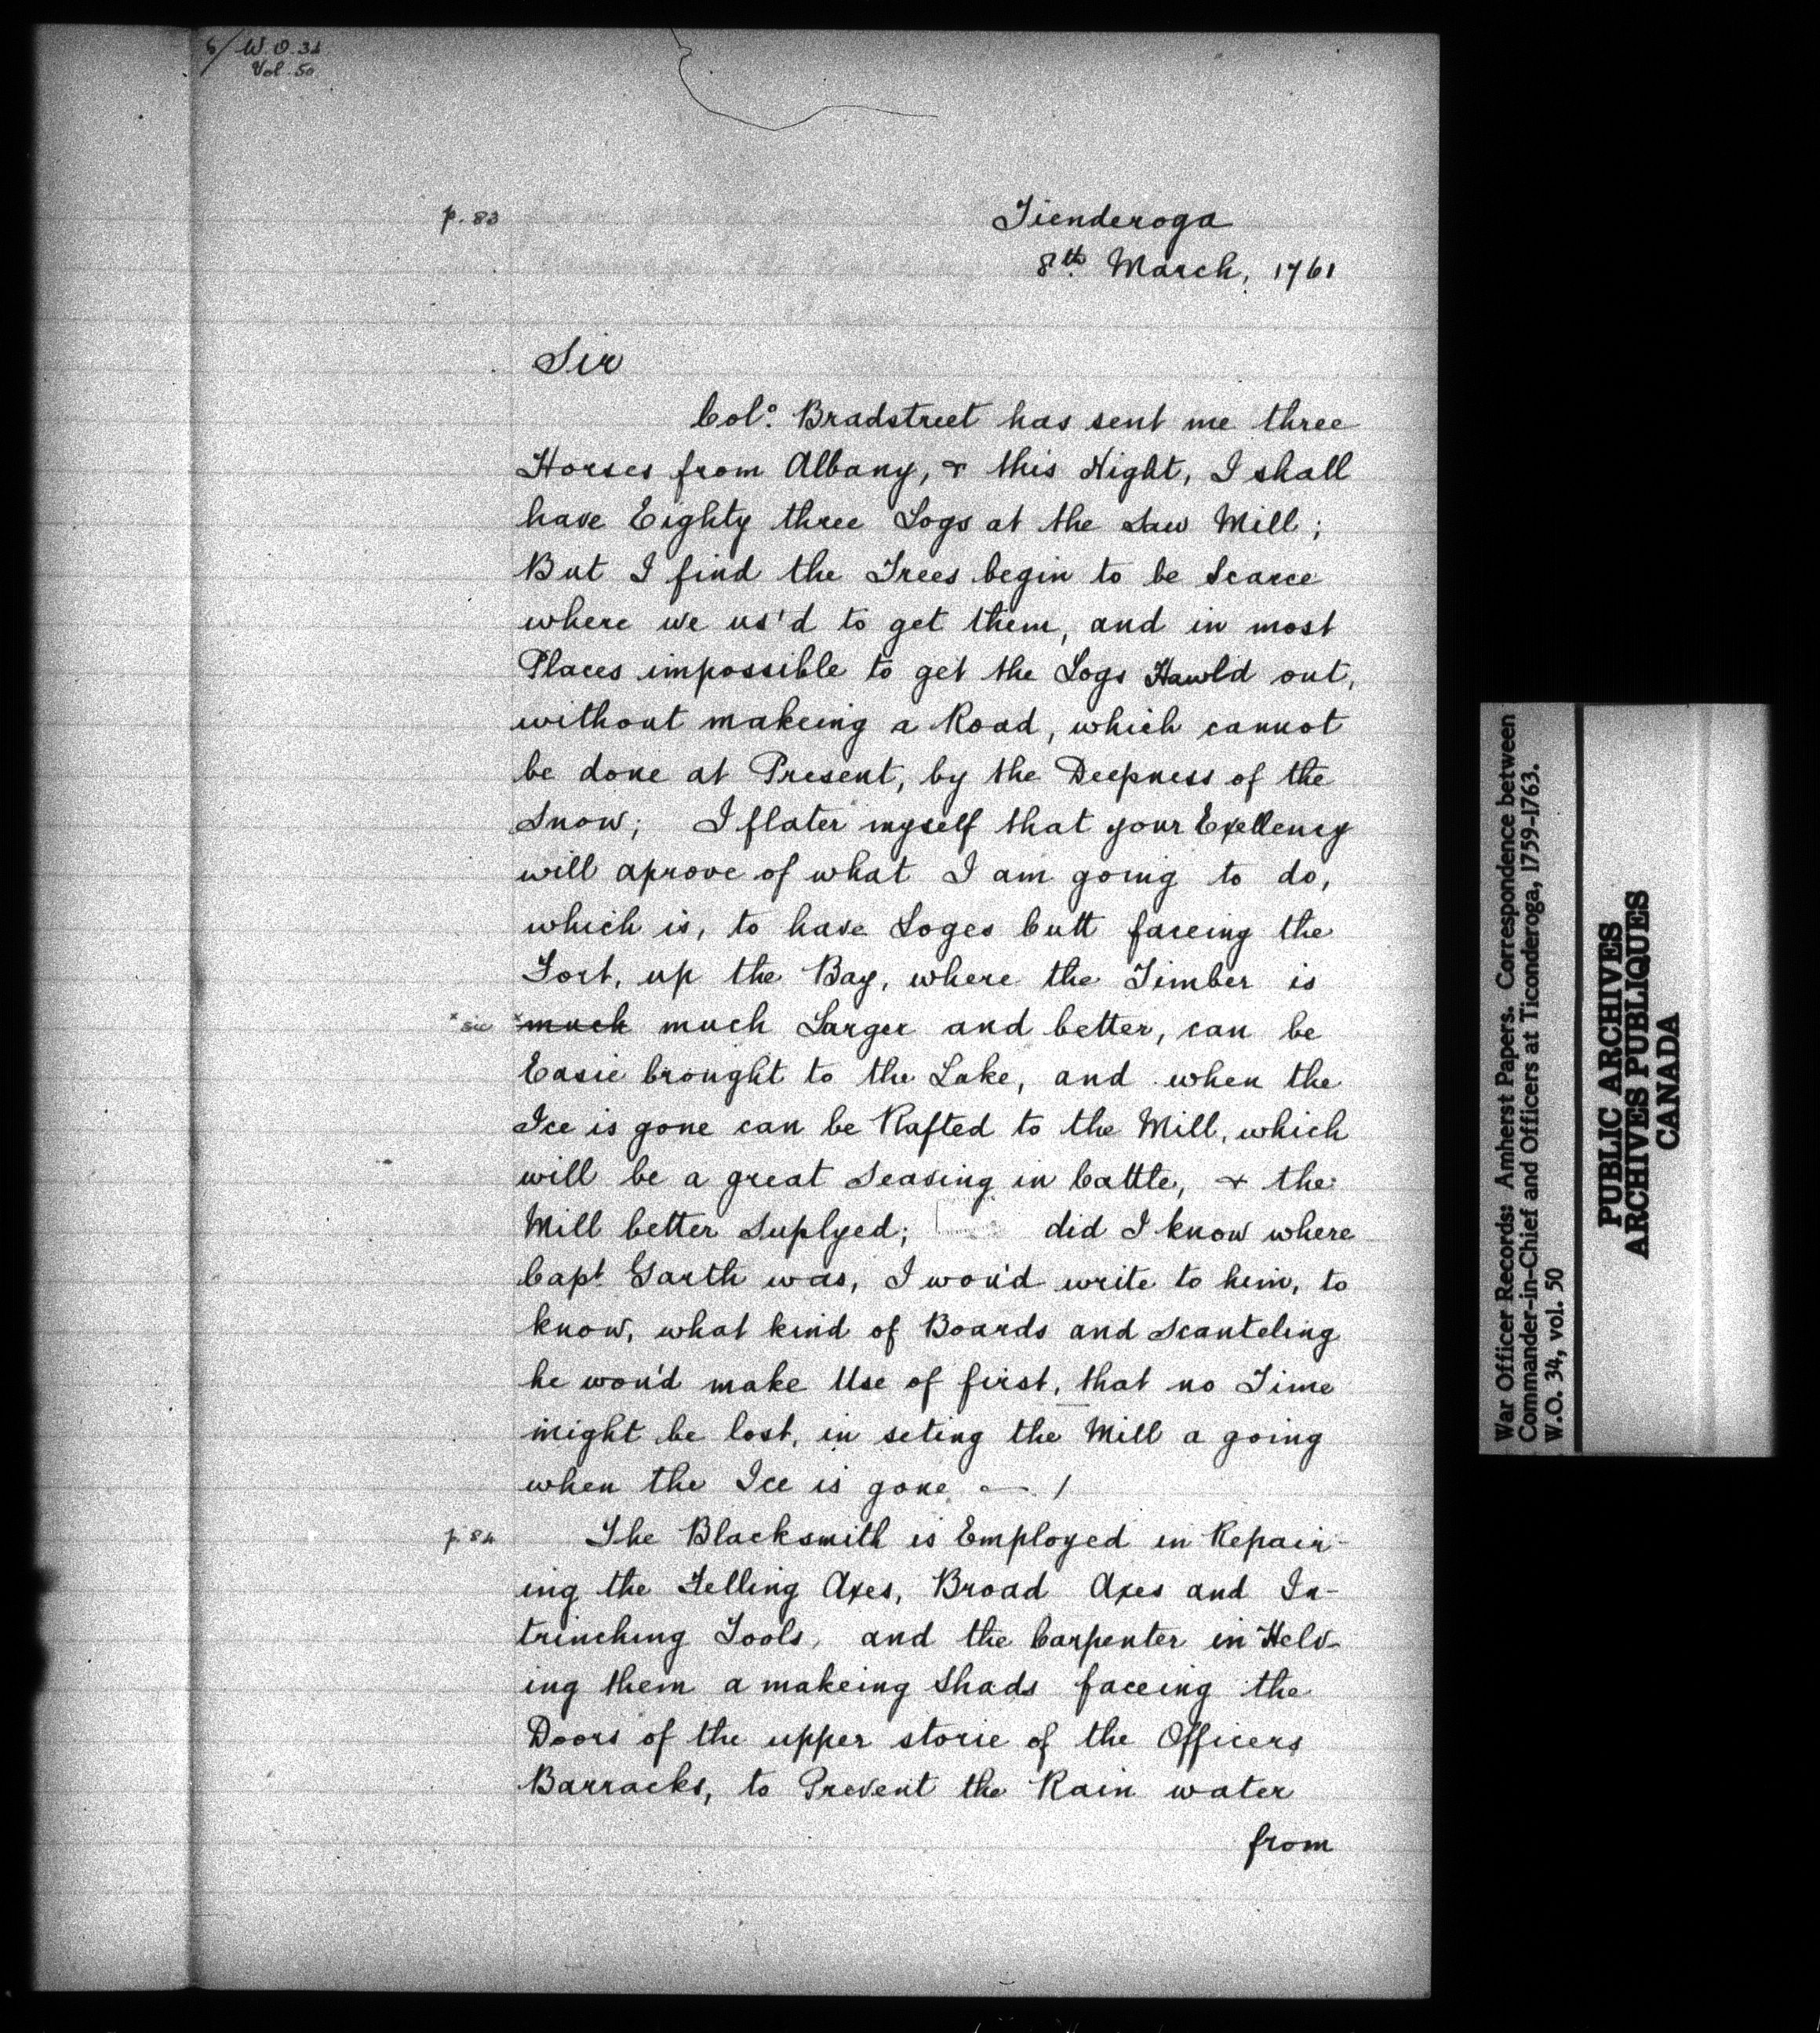 6/ W.O. 34
Vol. 50
p. 83
Tienderoga
8th March, 1761
Sir
Colo. Bradstreet has sent me three
Horses from Albany, & this Night, I shall
have Eighty three Logs at the Saw Mill;
But I find the Trees begin to be Scarce
where we us'd to get them, and in most
Places impossible to get the Logs Hawld out,
without makeing a Road, which cannot
be done at Present, by the Deepness of the
Snow; I flater myself that your Exellency
will aprove of what I am going to do,
which is, to have Loges Cutt faceing the
Fort, up the Bay, where the Timber is
*sic *much much Larger and better, can be
Easie brought to the Lake, and when the
Ice is gone can be Rafted to the Mill, which
will be a great Seaving in Cattle, & the
Mill better Suplyed; did I know where
Capt Garth was, I wou'd write to him, to
know, what kind of Boards and Scanteling
he wou'd make Use of first, that no Time
might be lost, in seting the Mill a going
when the Ice is gone — /
p. 84
The Blacksmith is Employed in Repair-
ing the Felling Axes, Broad Axes and In-
trinching Tools, and the Carpenter in Helv-
ing them a makeing Shads faceing the
Doors of the upper storie of the Officers
Barracks, to Prevent the Rain water
from
War Officer Records: Amherst Papers. Correspondence between
Commander-in-Chief and Officers at Ticonderoga, 1759-1763.
W.O. 34, vol. 50
PUBLIC ARCHIVES
ARCHIVES PUBLIQUES
CANADA